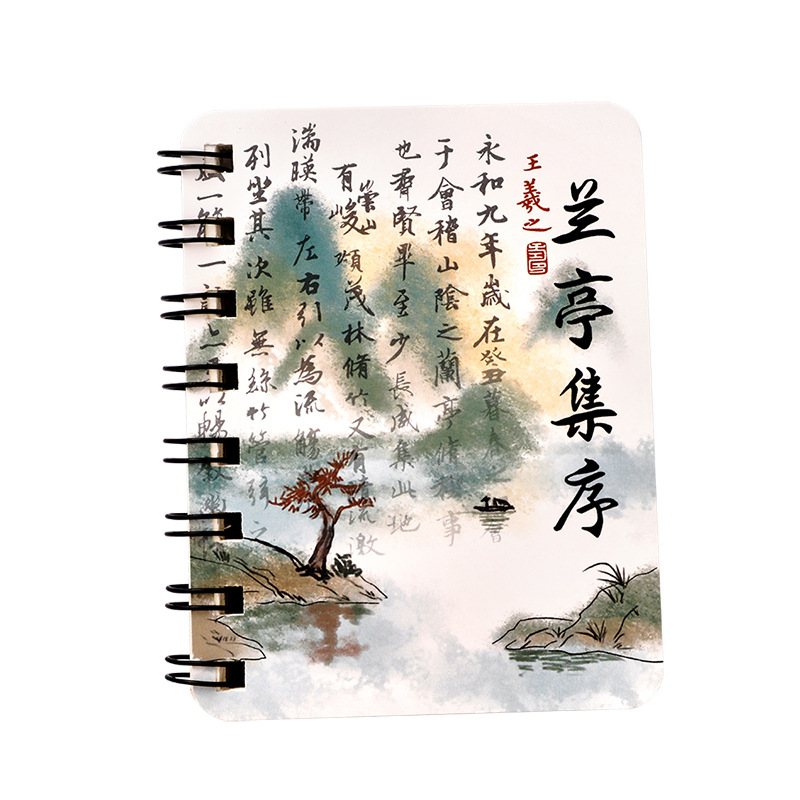 兰亭集序
王羲之
永和九年歲在癸丑暮春之
于會稽山陰之蘭亭脩禊事
也羣賢畢至少長咸集此地
有崇山峻領茂林脩竹又有清流激
湍暎帶左右引以為流觴
列坐其次雖無絲竹管弦之
一觴一詠亦足以暢敘幽情